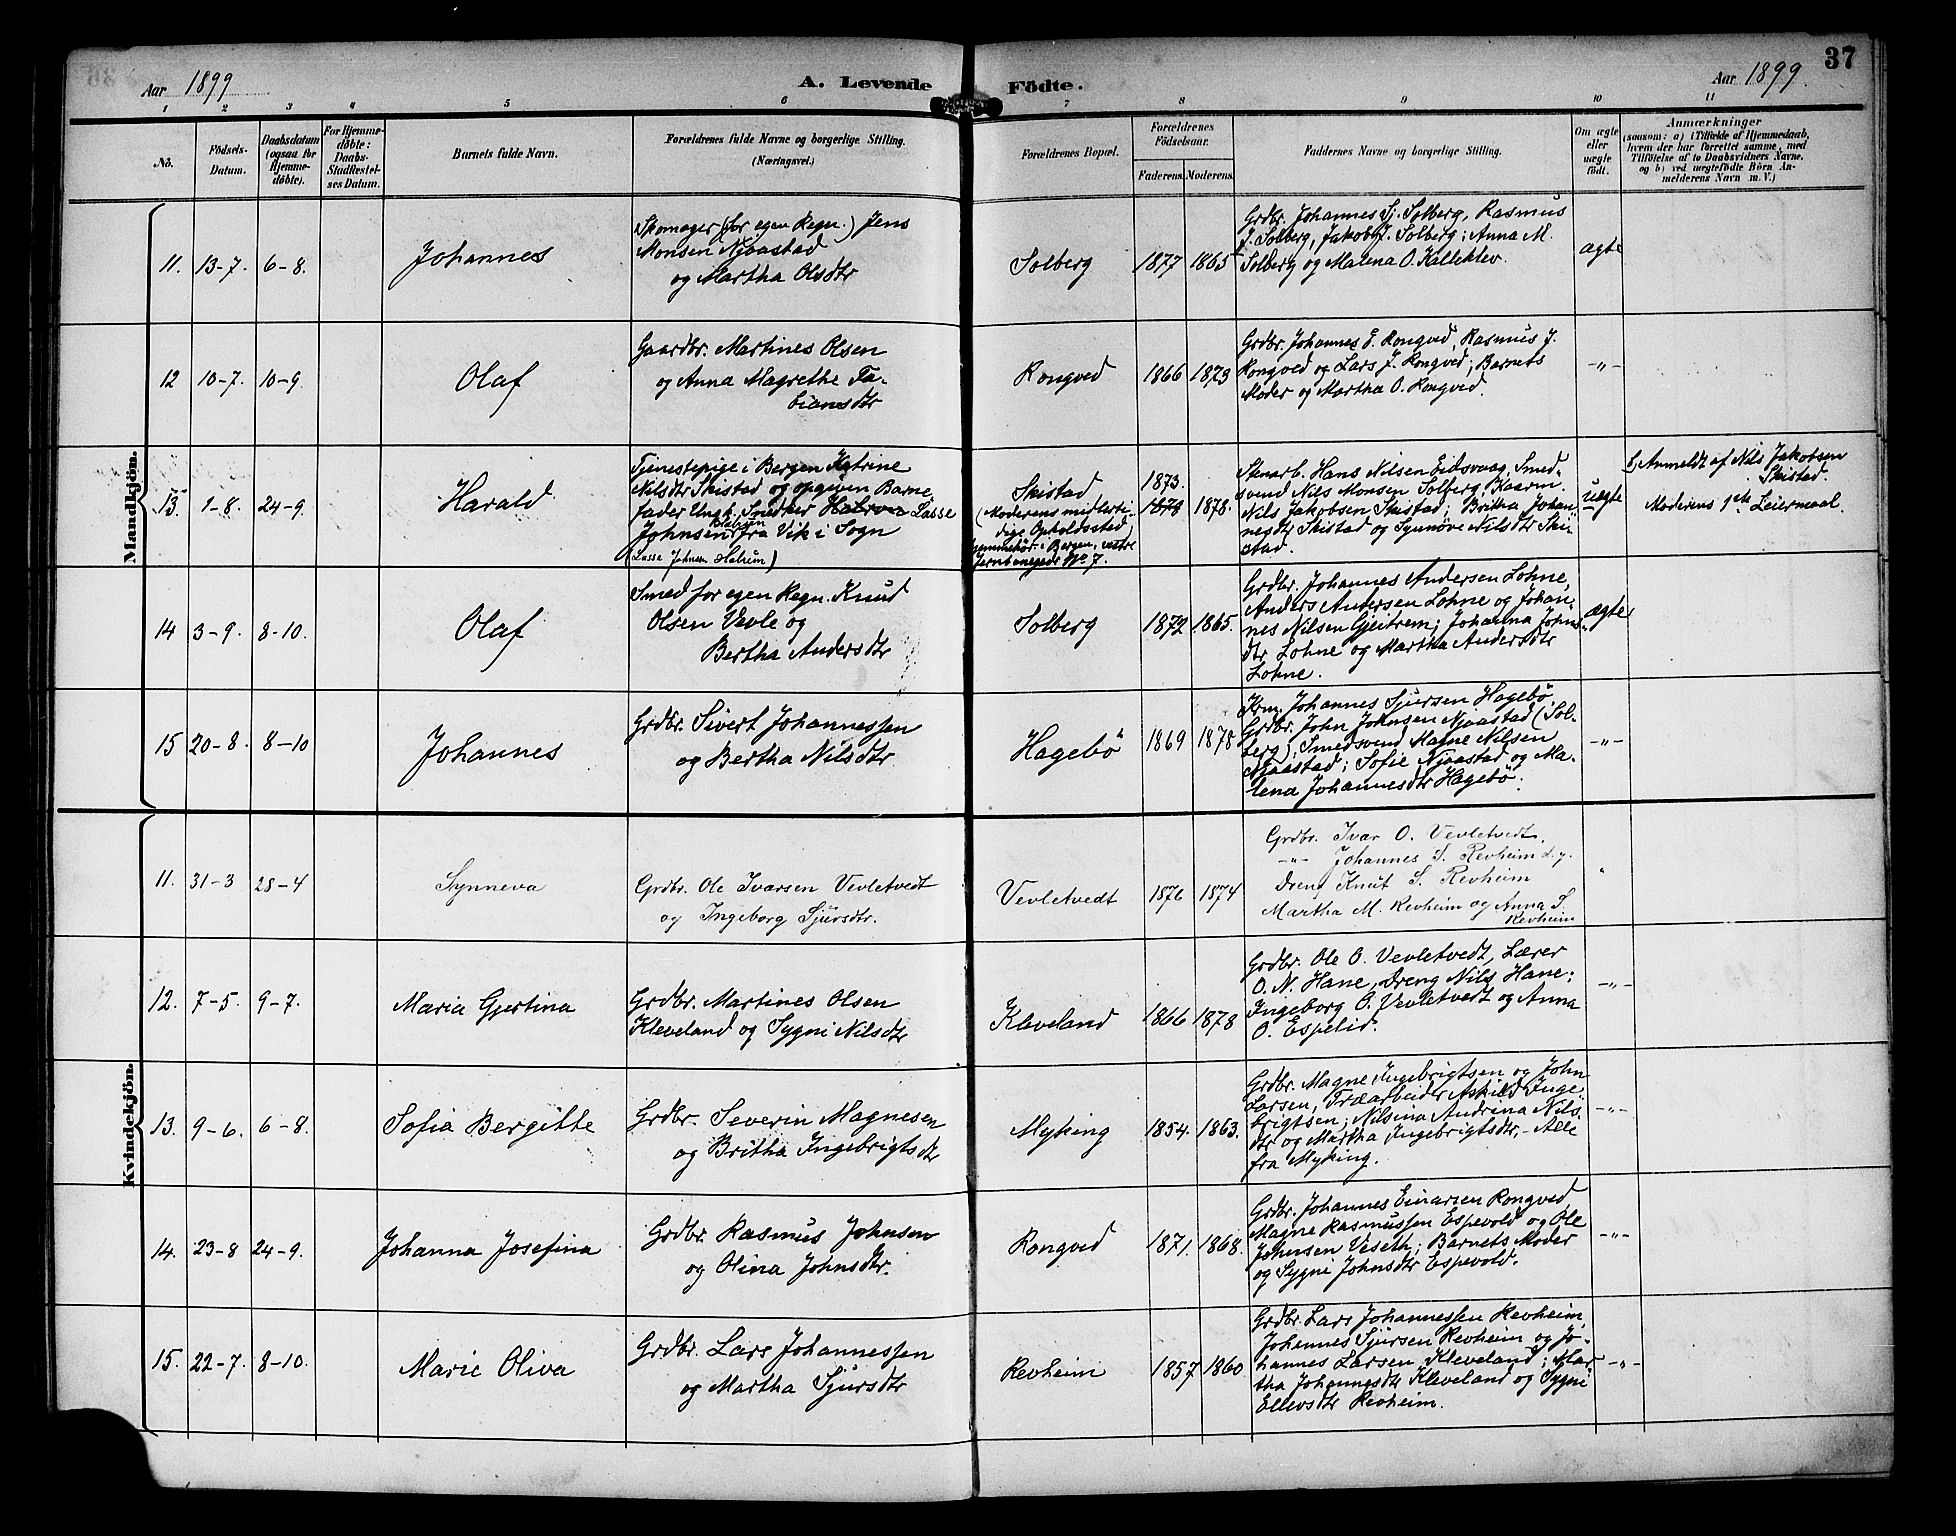 Aar 1899
A. Levende Födte.
Aar 1899.
37
1 2 3 4 5 6 7 8 9 10 11
No.
Födsels-
Datum.
Daabsdatum
(ogsaa for
Hjemme-
döbte).
For Hjemme-
döbte:
Daabs-
Stadfæstel-
ses Datum.
Barnets fulde Navn.
Forældrenes fulde Navne og borgerlige Stilling.
(Næringsvei.)
Forældrenes Bopæl.
Forældrenes
Födselsaar.
Faderens. Moderens.
Faddernes Navne og borgerlige Stilling.
Om ægte
eller
uægte
födt.
Anmærkninger
(saasom: a) i Tilfælde af Hjemmedaab,
hvem der har forrettet samme, med
Tilföielse af to Daabsvidners Navne,
og b) ved uægtefödte Börn An-
melderens Navn m. V.)
Mandkjön.
11. 13-7. 6-8.
Johannes
Skomager (for egen Regn.) Jens
Monsen Njaastad
og Martha Olsdtr
Solberg
1877 1865
Grdbr. Johannes Sj. Solberg, Rasmus
J. Solberg, Jakob J. Solberg; Anna M.
Solberg og Malena O. Kalleklev.
ægte
12 10-7. 10-9.
Olaf
Gaardbr. Martines Olsen
og Anna Magrethe Fa-
biansdtr
Rongved
1866 1873
Grdbr. Johannes E. Rongved, Rasmus J.
Rongved og Lars J. Rongved; Barnets
Moder og Martha O. Rongved.
-"-
13. 1-8. 24-9.
Harald
Tjenestepige i Bergen Katrine
Nilsdtr Skistad og opgiven Barne-
fader Ungk. Snedker Lasse
Johnsen fra Vik i Sogn
(Lasse Johnsen Halrum)
Skistad
(Moderens midlerti-
dige Opholdssted
Hjemmehör i Bergen, vestre
No 7.
1873.
1878.
Stenarb. Hans Nilsen Eidsvaag, Smed-
svend Nils Monsen Solberg, Kaarm.
Nils Jakobsen Skistad; Britha Johan-
nesdtr Skistad og Synnöve Nilsdtr Ski-
stad.
uægte
b, Anmeldt af Nils Jakobsen
Skistad.
Moderens 1ste Leiermaal.
14 3-9. 8-10.
Olaf
Smed for egen Regn. Knud
Olsen Vevle og
Bertha Andersdtr
Solberg
1872 1865.
Grdbr. Johannes Andersen Lohne,
Anders Andersen Lohne og Johan-
nes Nilsen Gjeitrem; Johanna Johns-
dtr Lohne og Martha Andersdtr
Lohne.
ægte
15 20-8. 8-10
Johannes
Grdbr. Sivert Johannessen
og Bertha Nilsdtr
Hagebö
1869 1878
Johannes Sjursen Hagebö,
Grdbr. John Johnsen Njaastad (Sol-
berg), Smedsvend Magne Nilsen
Njaastad; Sofie Njaastad og Ma-
lena Johannesdtr Hagebö.
-"-
Kvindekjön.
11. 31-3 28-4
Synneva
Grdbr. Ole Ivarsen Vevletvedt
og Ingeborg Sjursdtr.
Vevletvedt
1876 1874
Grdbr. Ivar O. Vevletvedt,
-"- Johannes S. Revheim d.y.
Dreng Knut S. Revheim
Martha M. Revheim og Anna S.
Revheim
"
12. 7-5. 9-7.
Maria Gjertina
Grdbr. Martines Olsen
Kleveland og Sygni Nilsdtr
Kleveland
1866 1878
Grdbr. Ole O. Vevletvedt, Lærer
O. N. Hane, Dreng Nils Hane;
Ingeborg O. Vevletvedt og Anna
O. Espelid.
-"-
13. 9-6. 6-8.
Sofia Bergitte
Grdbr. Severin Magnesen
og Britha Ingebrigtsdtr
Myking
1854. 1863.
Grdbr. Magne Ingebrigtsen og John
Larsen, Træarbeider Askild Inge-
brigtsen; Nilsina Andrina Nils-
dtr og Martha Ingebrigtsdtr, - Alle
fra Myking.
-"-
14. 23-8 24-9.
Johanna Josefina
Grdbr. Rasmus Johnsen
og Olina Johnsdtr.
Rongved
1871. 1868.
Grdbr. Johannes Einarsen Rongved
Magne Rasmussen Espevold og Ole
Johnsen Veseth; Barnets Moder
og Sygni Johnsdtr Espevold.
-"-
15. 22-7. 8-10.
Marie Oliva
Grdbr. Lars Johannessen
og Martha Sjursdtr
Revheim
1857 1860
Grdbr. Lars Johannessen Revheim,
Johannes Sjursen Revheim og Jo-
hannes Larsen Kleveland; Mar-
tha Johannesdtr Kleveland og Sygni
Ellevsdtr Revheim.
-"-